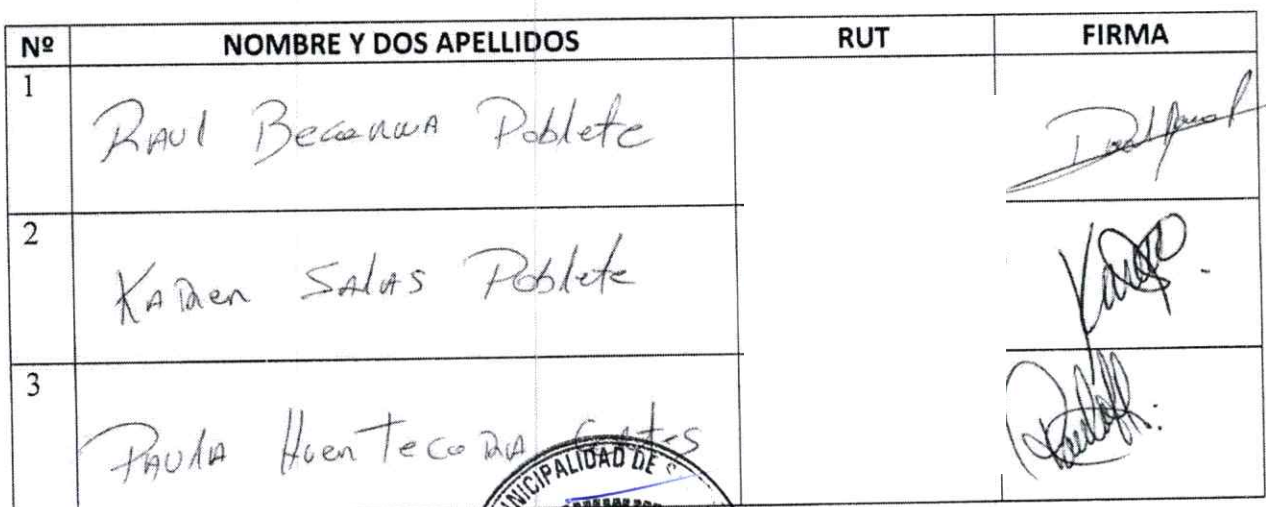 Nº NOMBRE Y DOS APELLIDOS RUT FIRMA
1 Raul Becerra Poblete
2 Karen Salas Poblete
3 Paula
MUNICIPALIDAD DE